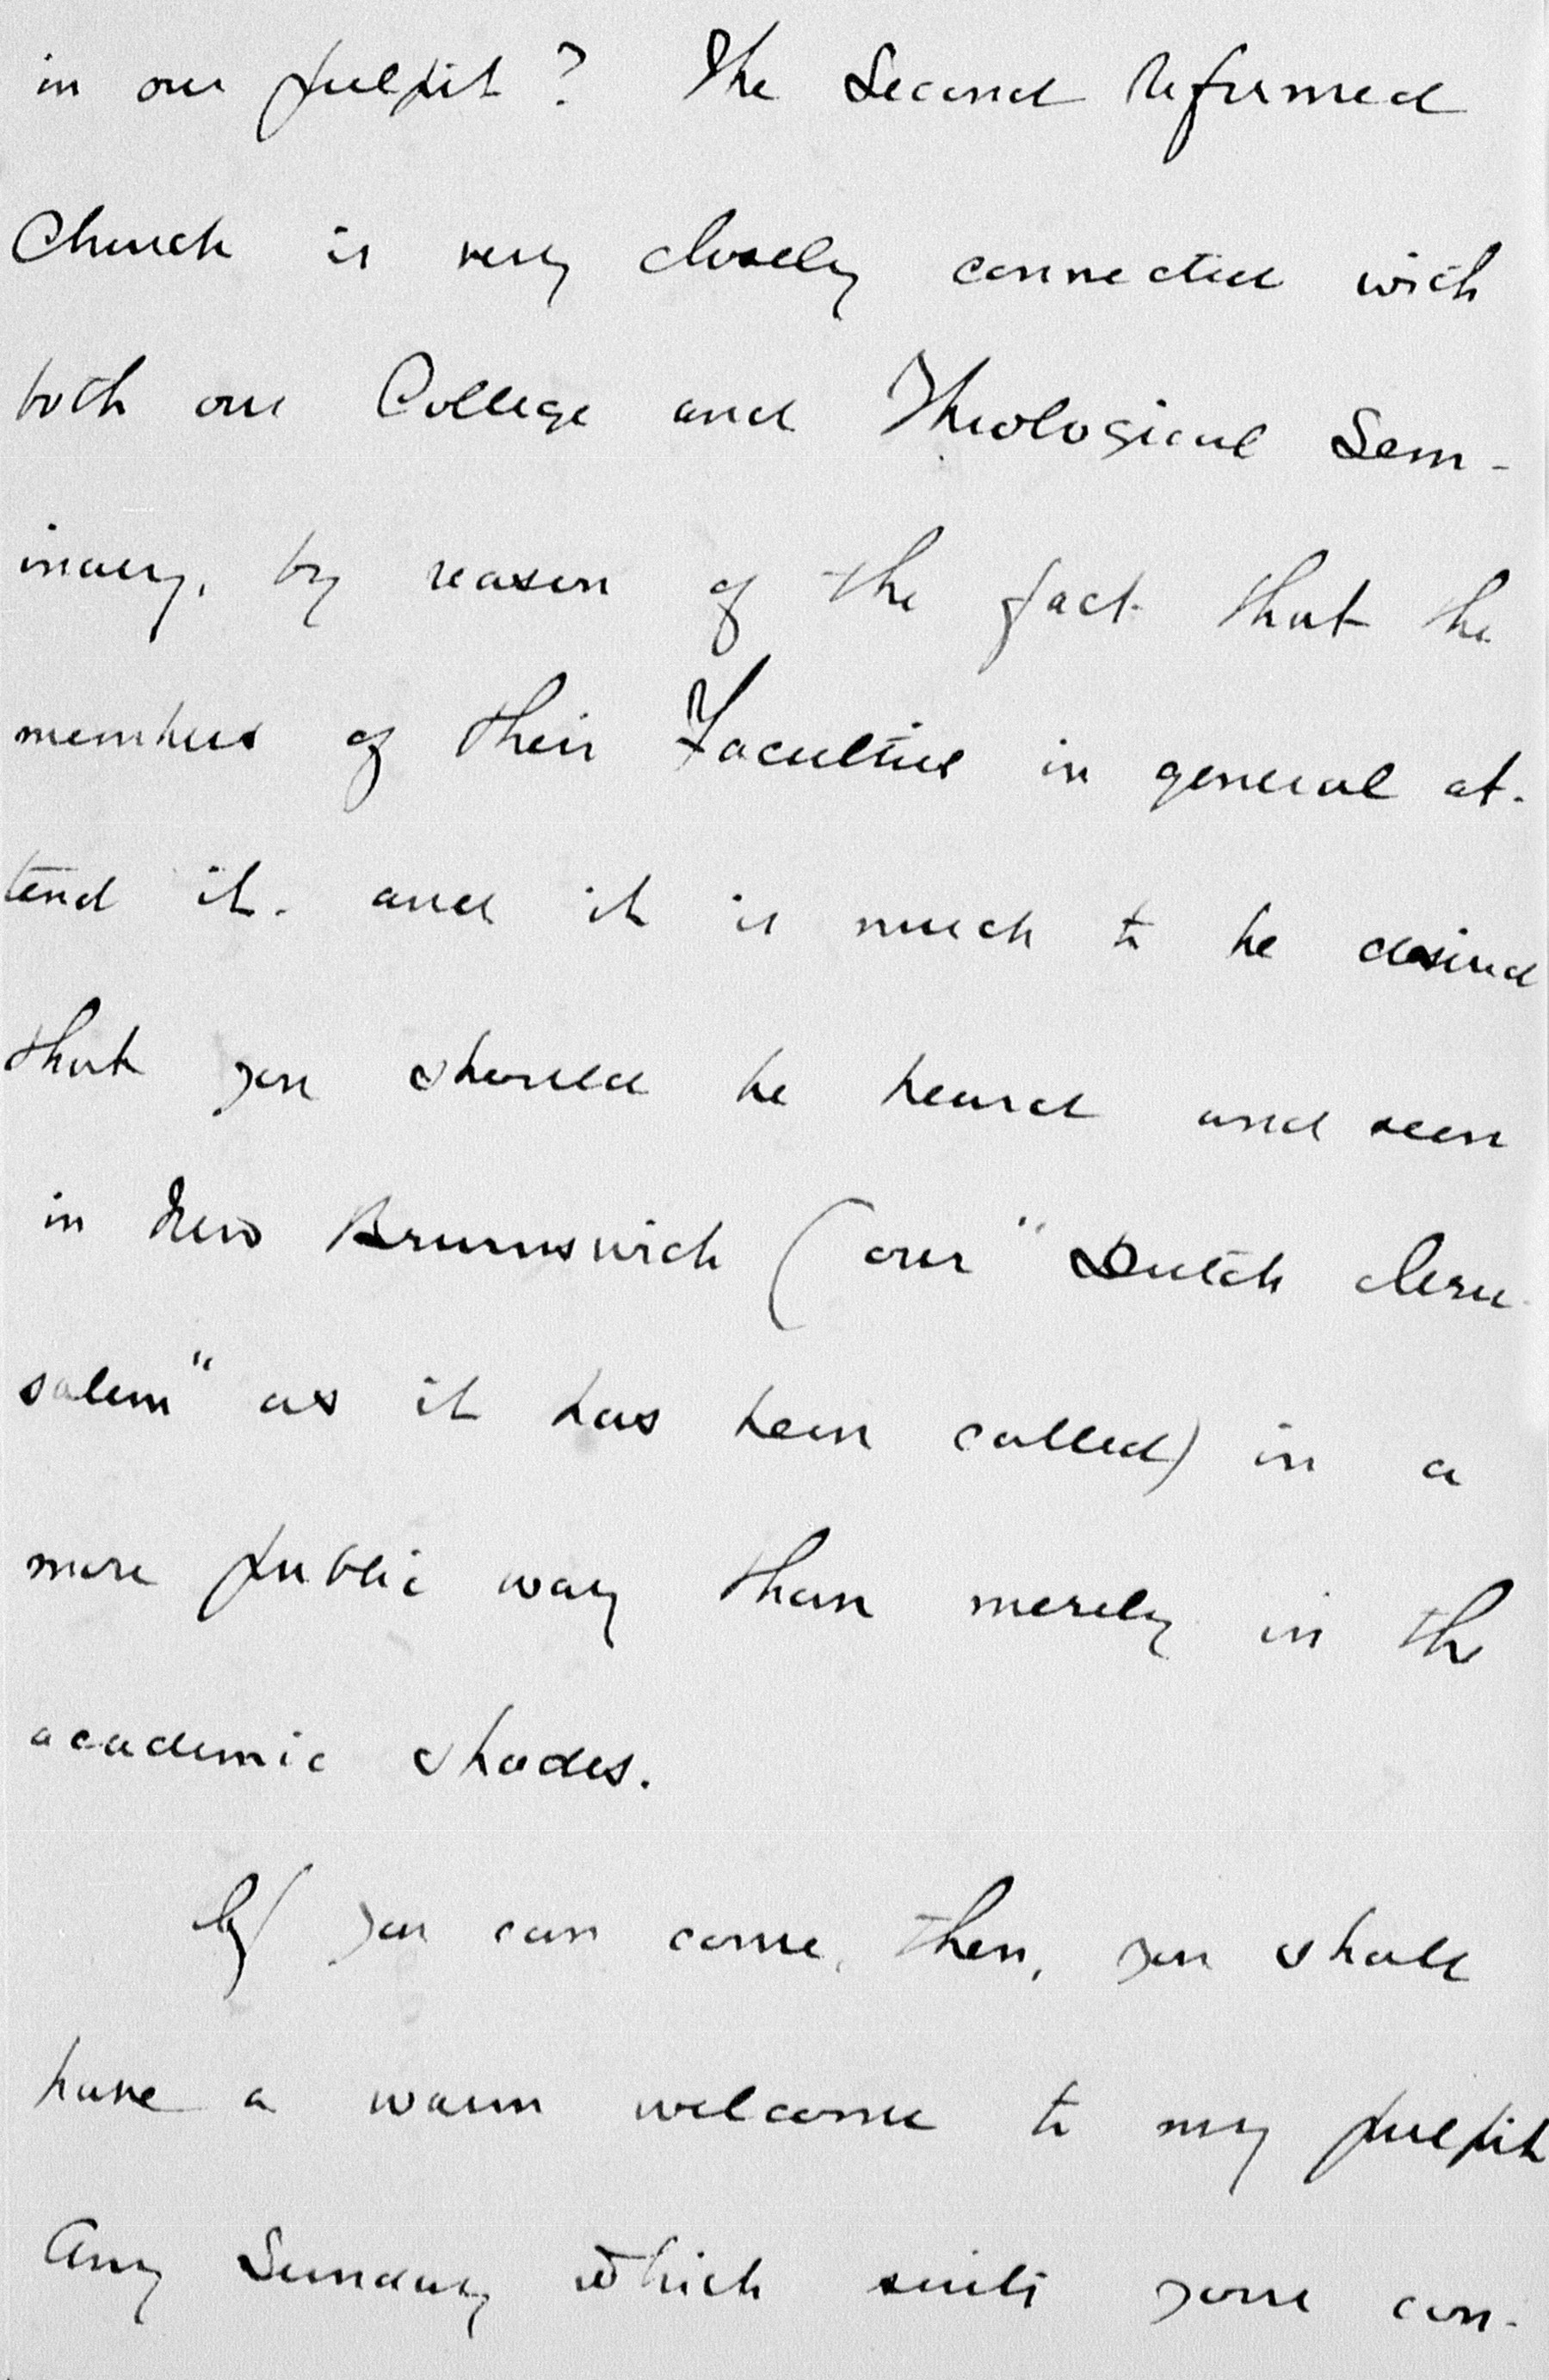 in our pulpit? The Second Reformed
Church is very closely connected with
both our College and Theological Sem-
inary, by reason of the fact that the
members of their Faculties in general at-
tend it. and it is much to be desired
that you should be heard and seen
in New Brunswick (our "Dutch Jeru-
salem" as it has been called) in a
more public way than merely in the
academic shades.
If you can come, then, you shall
have a warm welcome to my pulpit
Any Sunday which suits your con-